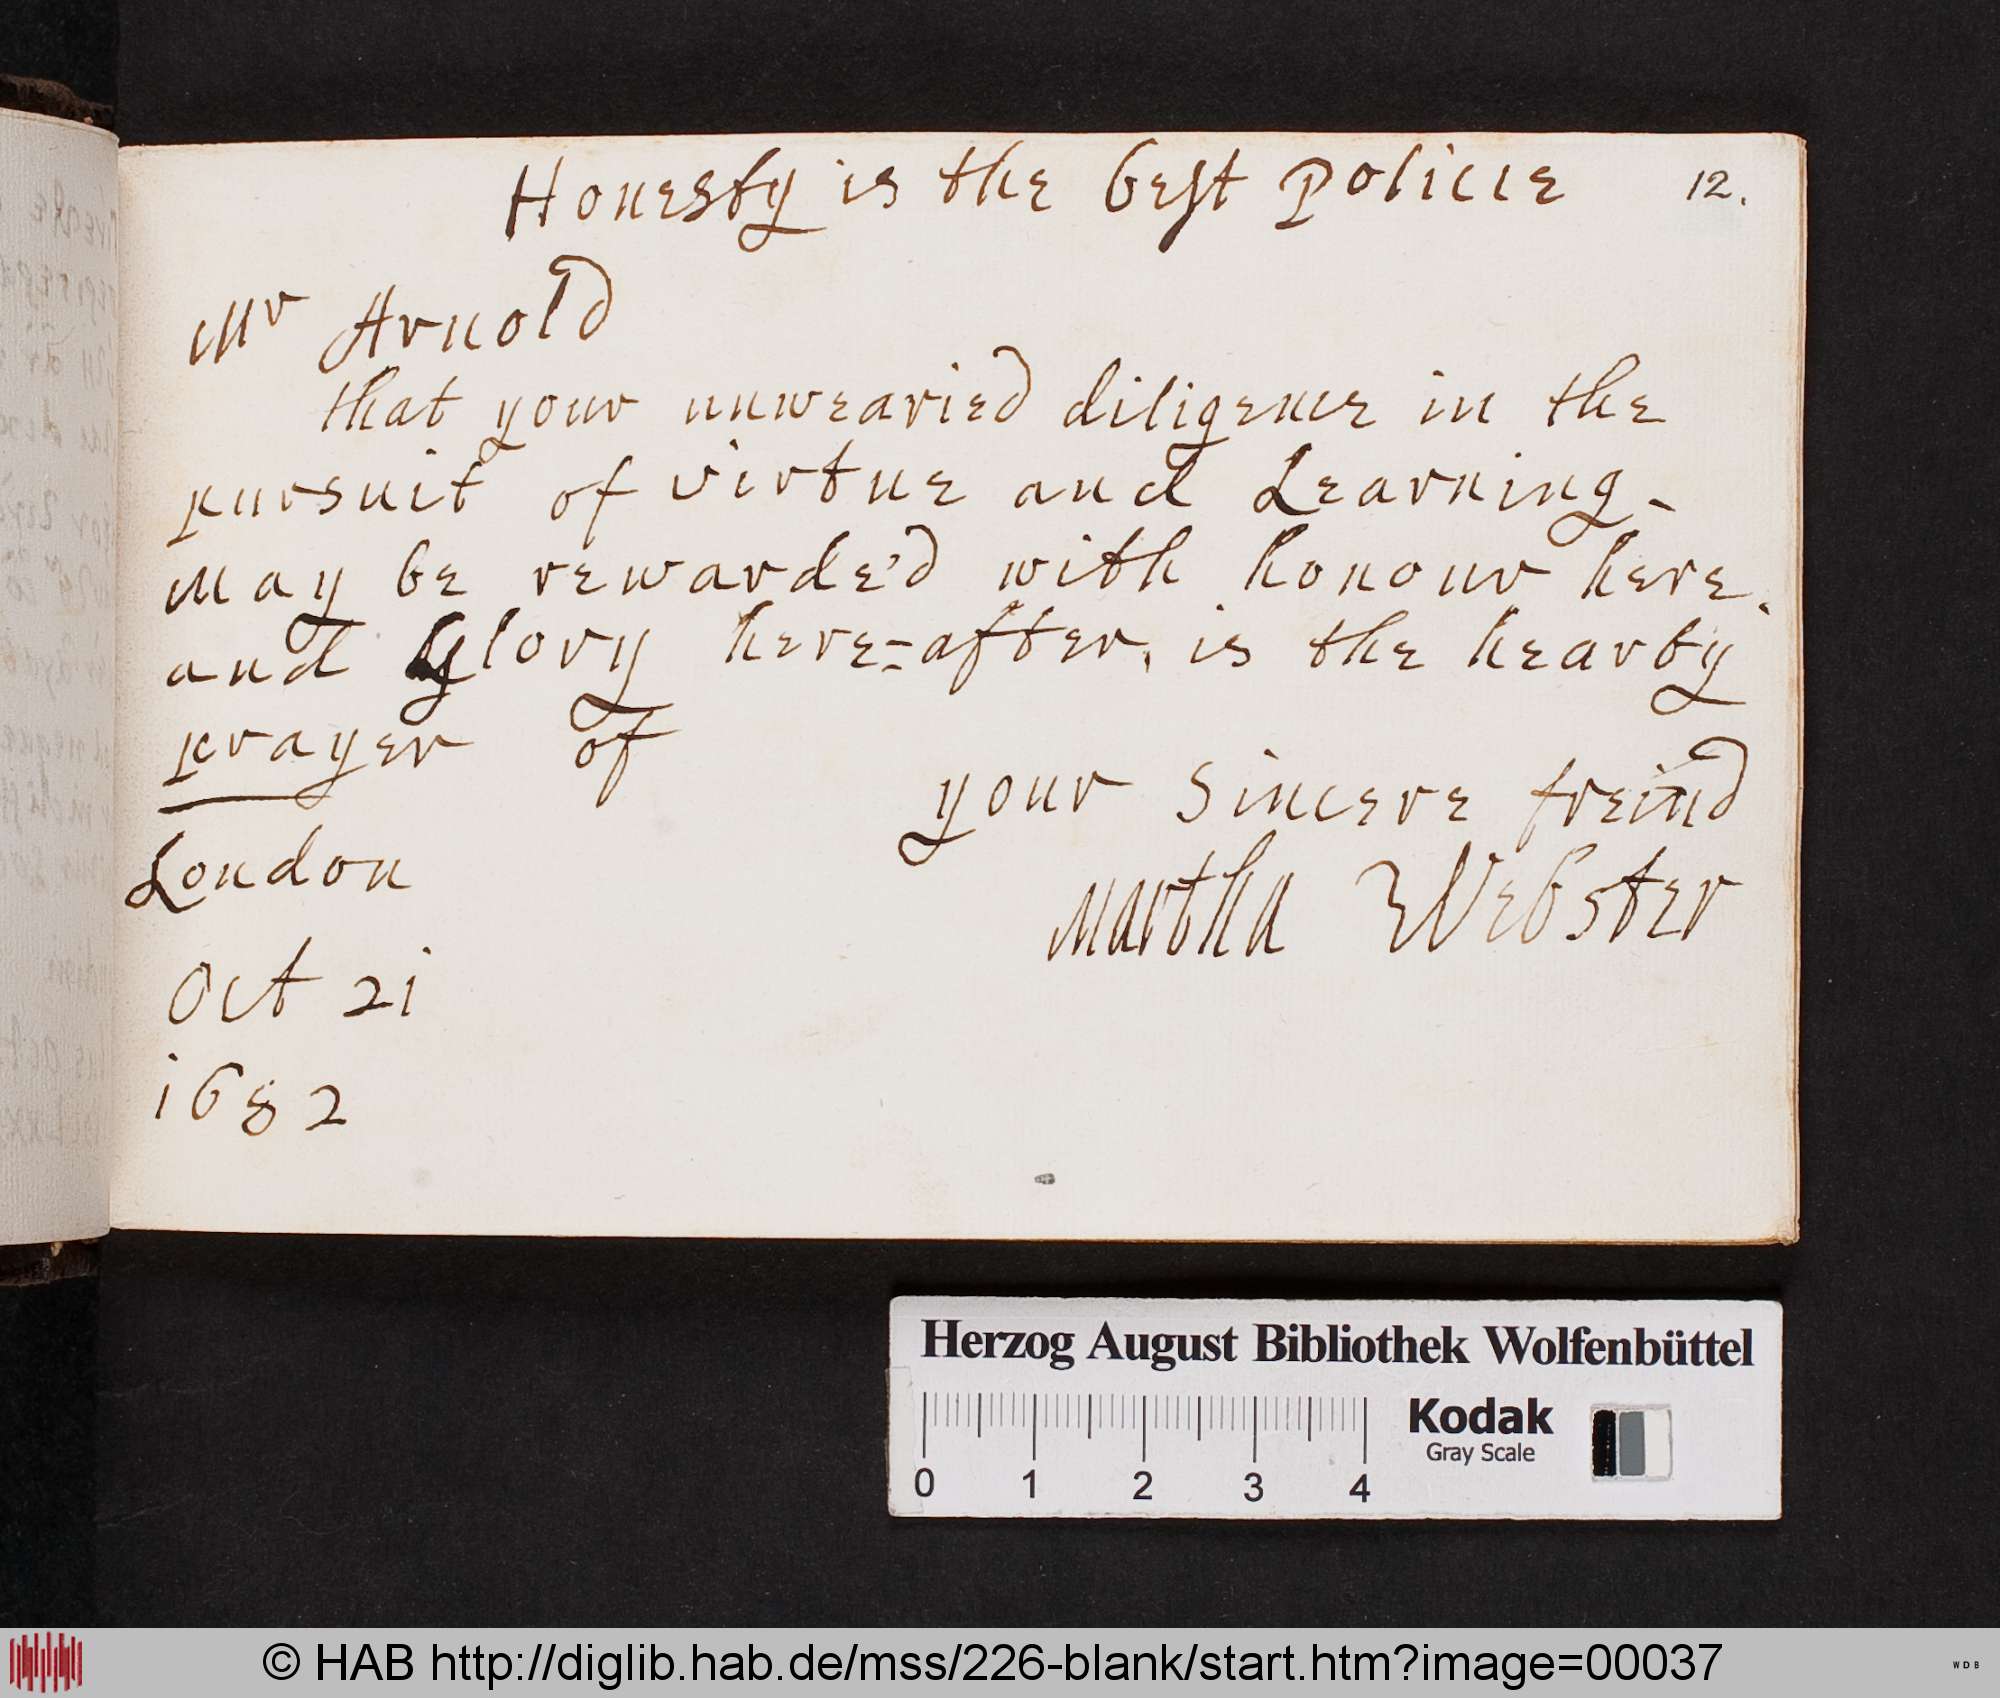 Honesty is the best Policie
12.
Mr Arnold
that your unwearied diligence in the
pursuit of virtue and Learning
may be rewarde'd with honour here.
and Glory here=after, is the hearty
prayer of
your sincere freind
Martha Webster
London
Oct 21
1682
Herzog August Bibliothek Wolfenbüttel
Kodak
Gray Scale
0 1 2 3 4
© HAB http://diglib.hab.de/mss/226-blank/start.htm?image=00037
WDB